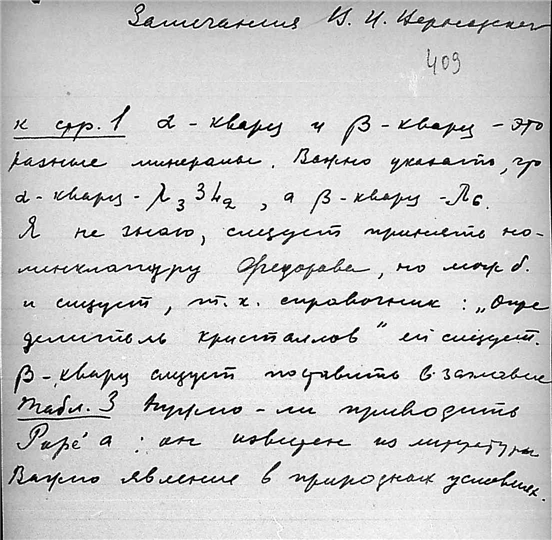 Замечания В. И. Вернадского
409
к стр. 1 α-кварц и β-кварц - это
разные минералы. Важно указать, что
α-кварц - 3L₂, а β-кварц -
Я не знаю, следует принять но-
минклатуру Федорова, но мож. б.
и следует, т.к. справочник: „Опре
делитель кристаллов" ей следует.
β-кварц следует поставить в заглавие
Табл. 3 Нужно-ли приводить
Papé а: он известен из литературы
Важно явление в природных условиях.